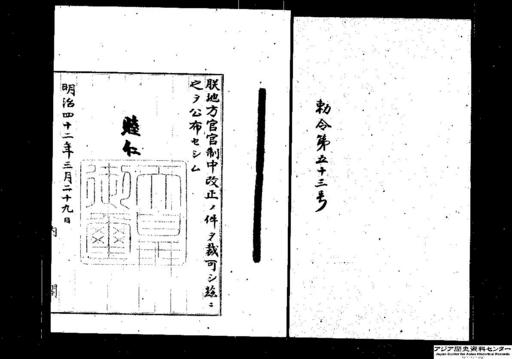 勅令第五十三号
朕地方官官制中改正ノ件ヲ裁可シ茲ニ
之ヲ公布セシム
睦仁
天皇
御璽
明治四十二年三月二十九日
内閣
アジア歴史資料センター
Japan Center for Asian Historical Records